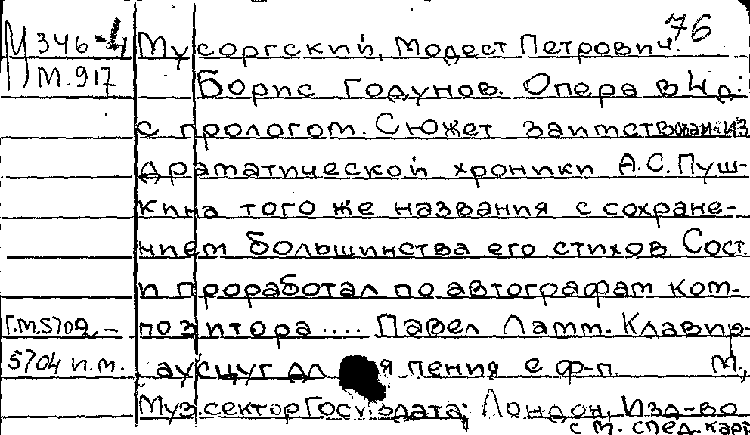 76
М 346-4 Мусоргский, Модест Петрович.
М.917 Борис Годунов. Опера в 4 д.
с прологом. Сюжет заимствован из
драматической хроники А.С. Пуш-
кина того же названия с сохране-
нием большинства его стихов. Сост.
и проработал по автографам ком-
позитора .... Павел Ламм. Клавир-
5704 п.м. аусцуг для пения с ф-п. М.,
Муз.сектор Госиздата; Лондон, Изд-во
с м. след. карт